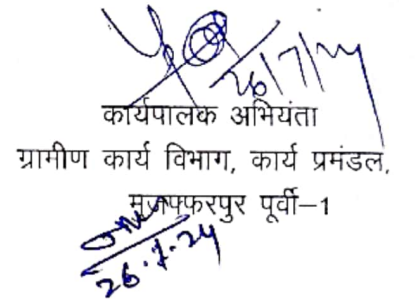 26/7/24
कार्यपालक अभियंता
ग्रामीण कार्य विभाग, कार्य प्रमंडल,
मुजफ्फरपुर पूर्वी–1
26.7.24